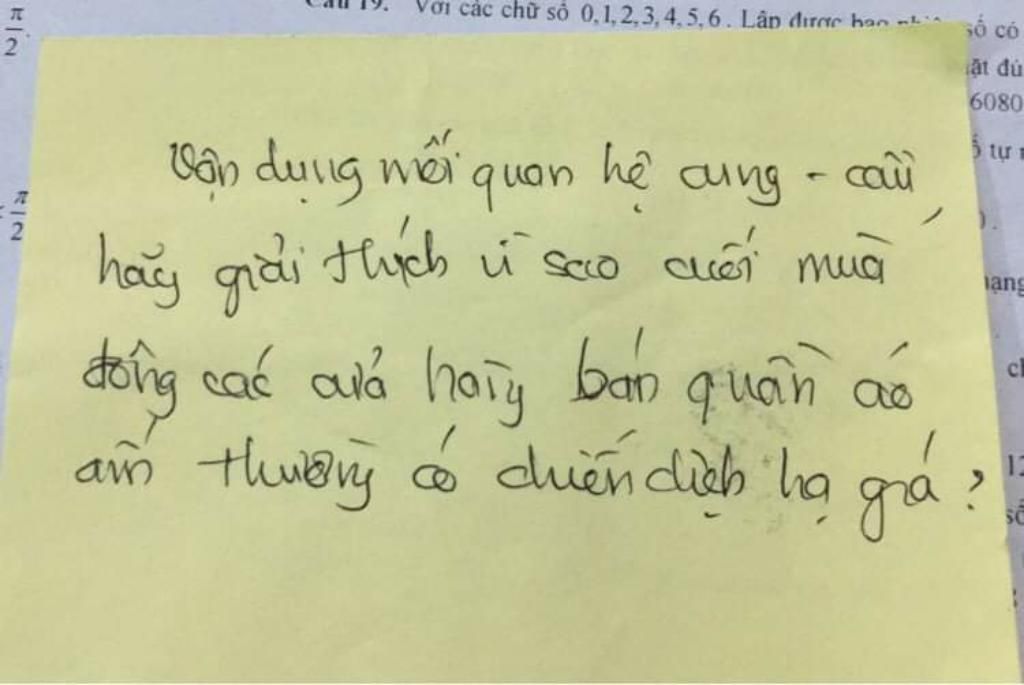 π/2.
Câu 19. Với các chữ số 0,1,2,3,4,5,6. Lập được bao số có
6080
ố tự
π/2
Vận dụng mối quan hệ cung - cầu
hãy giải thích vì sao cuối mùa
đông các cửa hàng bán quần áo
ấm thường có chiến dịch hạ giá?
12